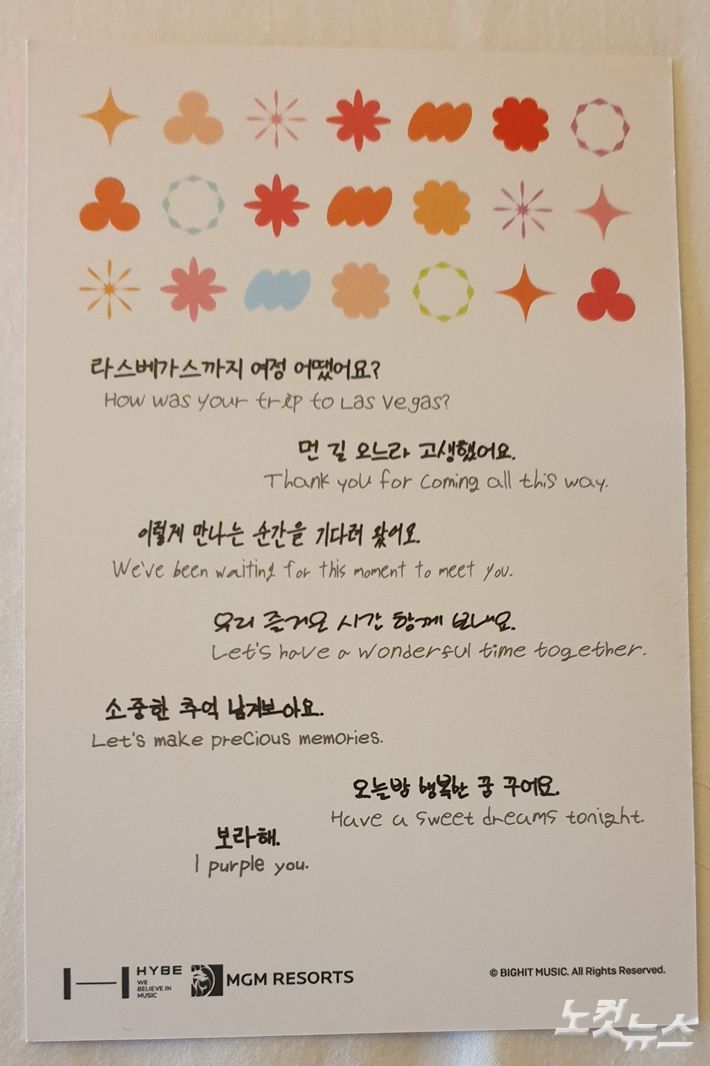 라스베가스까지 여정 어땠어요?
How was your trip to Las Vegas?
먼 길 오느라 고생했어요.
Thank you for coming all this way.
이렇게 만나는 순간을 기다려 왔어요.
We've been waiting for this moment to meet you.
우리 즐거운 시간 함께 보내요.
Let's have a wonderful time together.
소중한 추억 남겨보아요.
Let's make precious memories.
오늘밤 행복한 꿈 꾸어요.
Have a sweet dreams tonight.
보라해.
I purple you.
HYBE
WE
BELIEVE IN
MUSIC
MGM RESORTS
© BIGHIT MUSIC. All Rights Reserved.
노컷뉴스